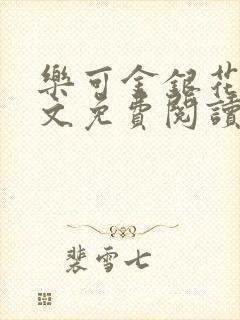 樂可金銀花
文免費閱讀
裴雪七